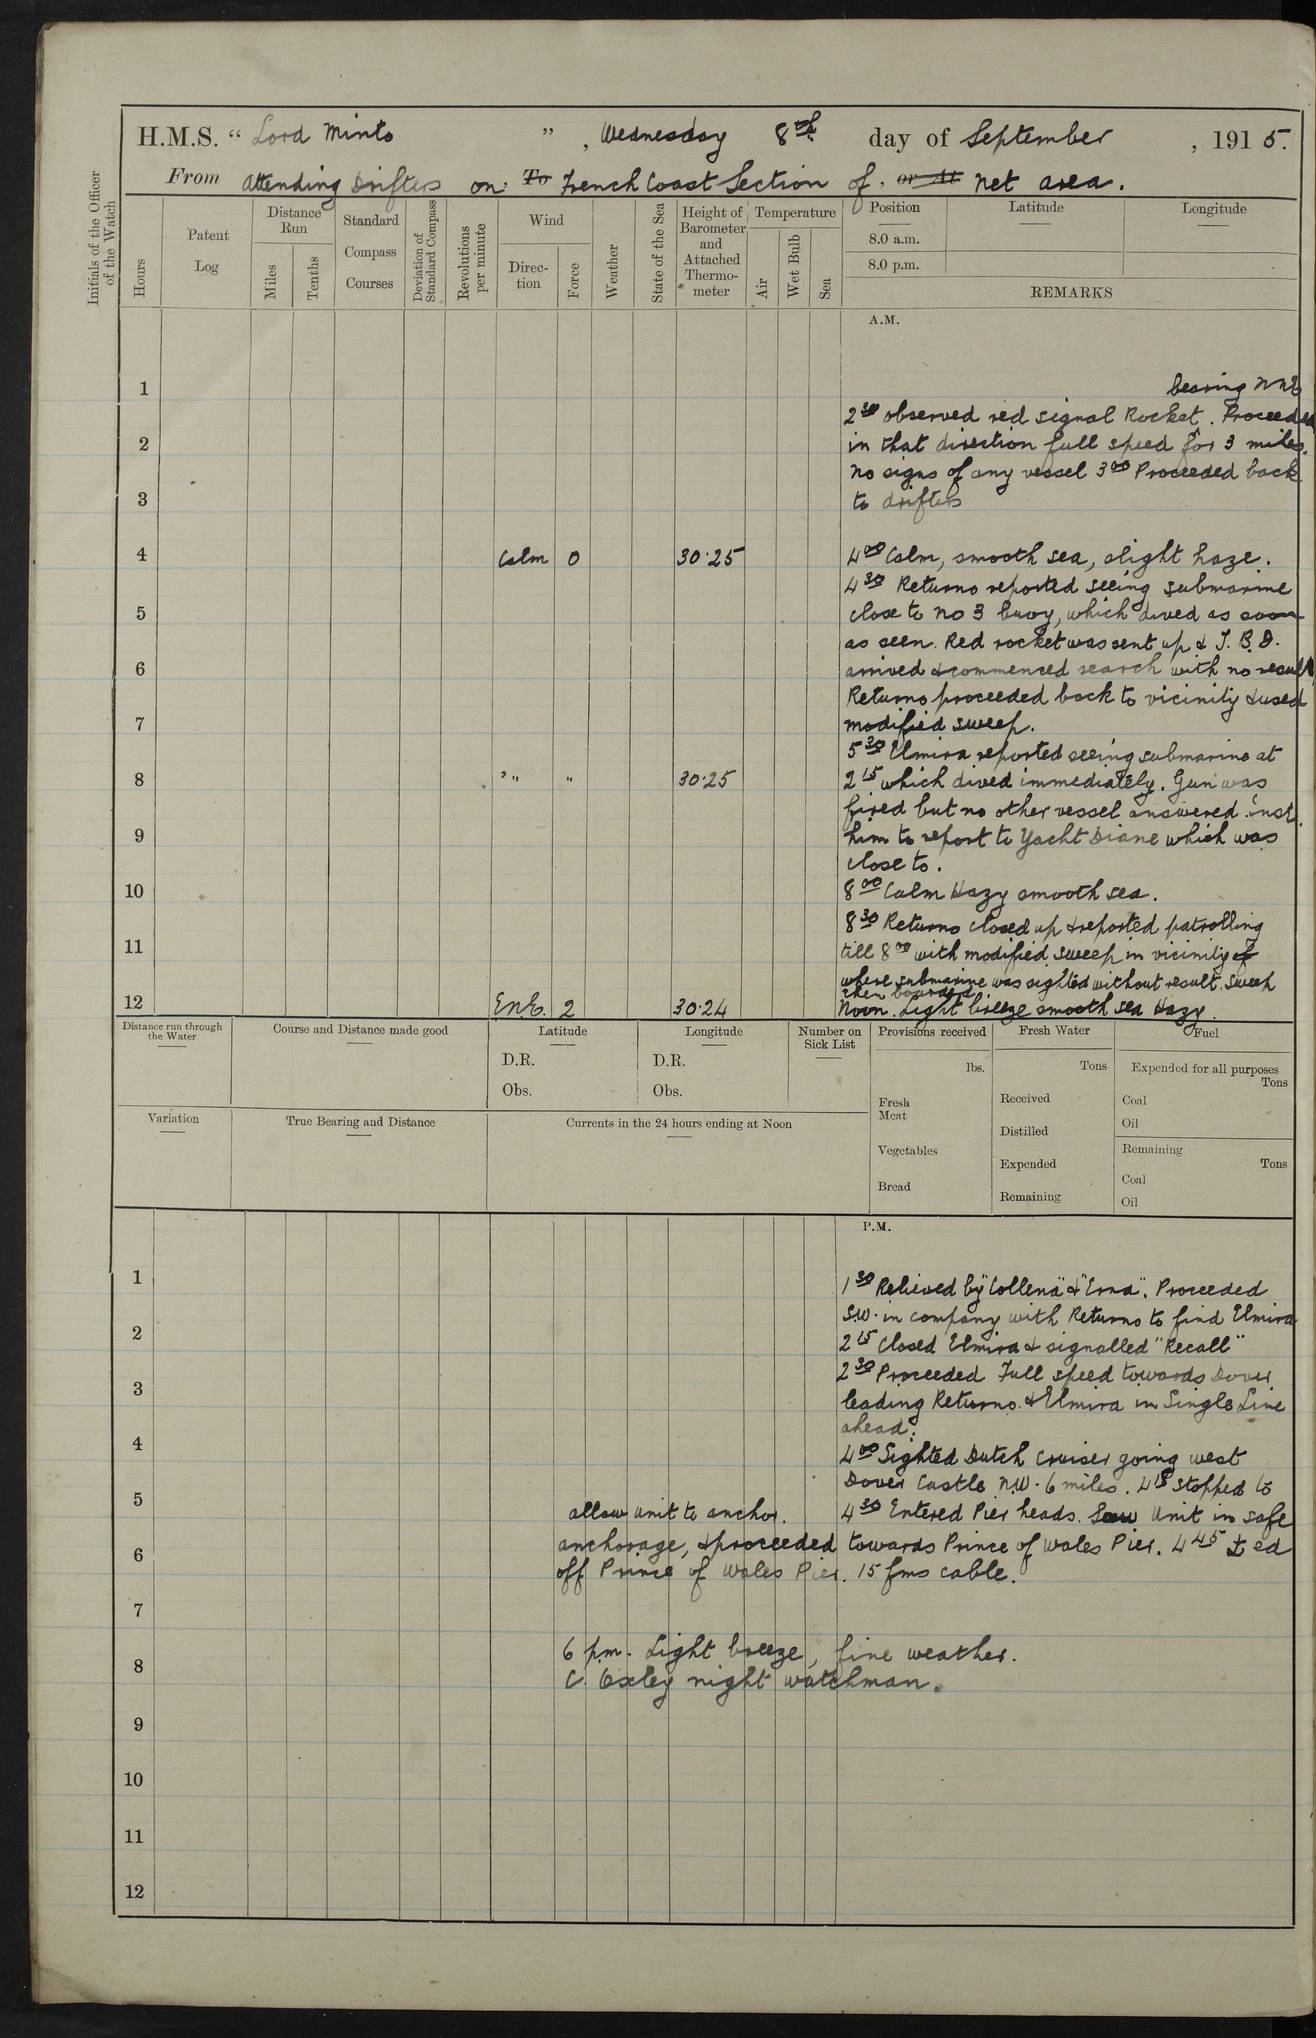 H.M.S. "Lord Minto", Wednesday 8th day of September, 1915.
From attending Drifters on To French Coast Section of. or At net area.
Initials of the Officer of the Watch
Hours
Patent Log
Distance Run
Miles
Tenths
Standard Compass Courses
Deviation of Standard Compass
Revolutions per minute
Wind
Direction
Force
Weather
State of the Sea
Height of Barometer and Attached Thermometer
Temperature
Air
Wet Bulb
Sea
Position
Latitude
Longitude
8.0 a.m.
8.0 p.m.
REMARKS
A.M.
1
bearing NNE
2 30 observed red signal Rocket. Proceeded
2
in that direction full speed for 3 miles.
No signs of any vessel 3 00 Proceeded back
3
to drifters
4 Calm 0 30.25 4 00 Calm, smooth sea, slight haze.
4 30 Returno reported seeing submarine
5
close to No 3 buoy, which dived as soon
as seen. Red rocket was sent up & T.B.D.
6
arrived & commenced search with no result,
Returno proceeded back to vicinity & used
7
modified sweep.
5 30 Elmira reported seeing submarine at
8 " " " 30.25 2 15 which dived immediately. Gun was
fired but no other vessel answered. inst.
9
him to report to Yacht Diane which was
close to.
10
8 00 Calm Hazy smooth sea.
8 30 Returno closed up & reported patrolling
11
till 8 00 with modified sweep in vicinity of
where submarine was sighted without result. Sweep
then boarded.
12 ENE. 2 30.24 Noon. Light breeze smooth sea Hazy.
Distance run through the Water
Course and Distance made good
Latitude
D.R.
Obs.
Longitude
D.R.
Obs.
Number on Sick List
Provisions received
lbs.
Fresh Meat
Vegetables
Bread
Fresh Water
Tons
Received
Distilled
Expended
Remaining
Fuel
Expended for all purposes
Tons
Coal
Oil
Remaining
Tons
Coal
Oil
Variation
True Bearing and Distance
Currents in the 24 hours ending at Noon
P.M.
1
1 30 Relieved by "Collena" & "Erna". Proceeded
S.W. in company with Returno to find Elmira
2
2 15 Closed Elmira & signalled "Recall"
2 30 Proceeded Full speed towards Dover
3
leading Returno & Elmira in Single Line
ahead.
4
4 00 Sighted Dutch cruiser going west
Dover Castle N.W. 6 miles. 4 15 stopped to
5
allow unit to anchor. 4 30 Entered Pier heads. Saw Unit in safe
anchorage, & proceeded towards Prince of Wales Pier. 4 45 ⚓ed
6
off Prince of Wales Pier. 15 fms cable.
7
6 p.m. Light breeze, fine weather.
8
C. Oxley night watchman.
9
10
11
12